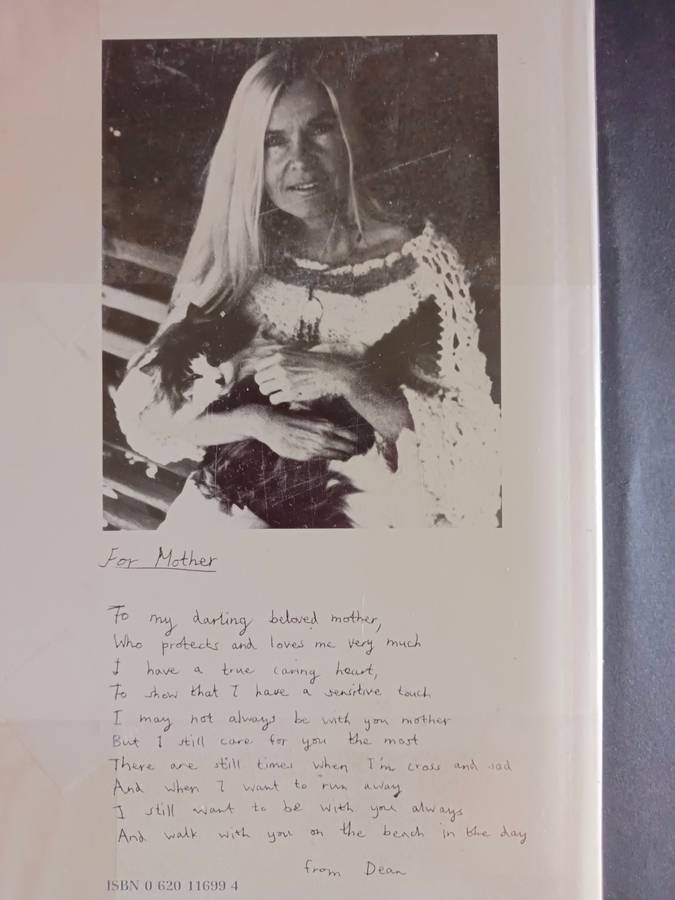 For Mother
To my darling beloved mother,
Who protects and loves me very much
I have a true caring heart,
To show that I have a sensitive touch
I may not always be with you mother
But I still care for you the most
There are still times when I'm cross and sad
And when I want to run away
I still want to be with you always
And walk with you on the beach in the day
from Dean
ISBN 0 620 11699 4